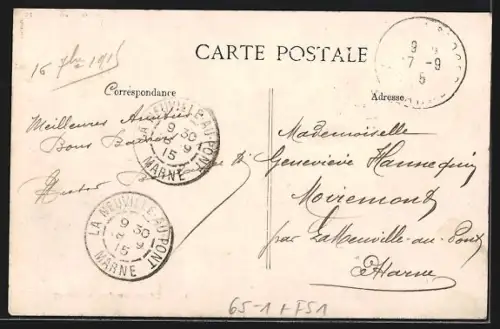 16 7bre 1915
CARTE POSTALE
Correspondance
Adresse
Meilleures Amitiés
Bons Baisers
LA NEUVILLE-AU-PONT
9 30
15
MARNE
LA NEUVILLE-AU-PONT
9 30
15
MARNE
9
7 -9
Mademoiselle
Geneviève Hannequin
Moiremont
par La Neuville-au-Pont
Marne
65-1 + F51